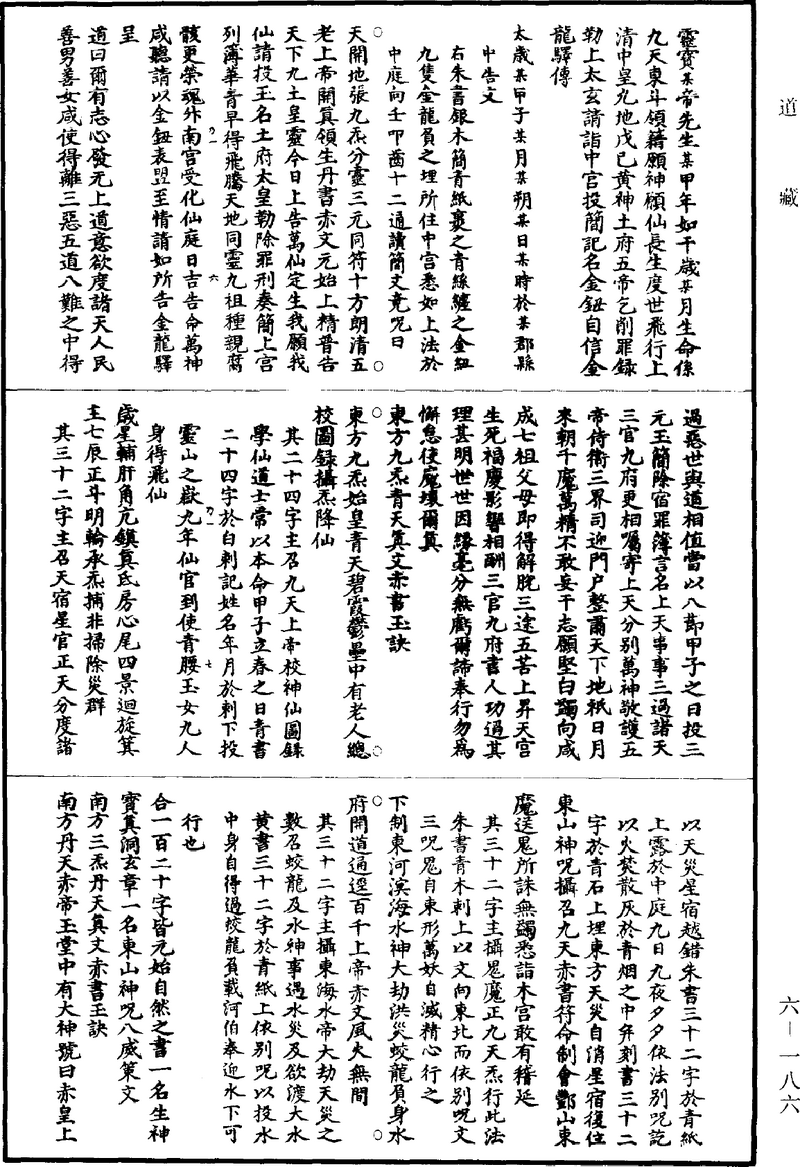 道藏
六—一八六
靈寶某帝先生某甲年如干歲某月生命係
九天東斗領籍願神願仙長生度世飛行上
清中皇九地戊已黃神土府五帝乞削罪録
勒上太玄請詣中宮投簡記名金鈕自信金
龍驛傳
太歲某甲子某月某朔某日某時於某郡縣
中告文
右朱書銀木簡青紙裹之青絲纏之金鈕
九隻金龍負之埋所住中宮悉如上法於
中庭向壬叩齒十二通讀簡文竟呪曰
天開地張九炁分靈三元同符十方朗清五
老上帝開真領生丹書赤文元始上精普告
天下九土皇靈今日上告萬仙定生我願我
仙請投玉名土府太皇勒除罪刑奏簡上宮
列簿華青早得飛騰天地同靈九祖種親腐
骸更榮魂升南宮受化仙庭日吉告命萬神
咸聽請以金鈕表盟至情請如所告金龍驛
呈
道曰爾有志心發无上道意欲度諸天人民
善男善女咸使得離三惡五道八難之中得
過惡世與道相值當以八節甲子之日投三
元玉簡除宿罪簿言名上天事事三過諸天
三官九府更相囑寄上天分別萬神敬護五
帝侍衞三界司迎門户整肅天下地祇日月
來朝千魔萬精不敢妄干志願堅白蠲向咸
成七祖父母即得解脫三途五苦上昇天宮
生死福慶影響相酬三官九府書人功過其
理甚明世世因緣毫分無虧爾諦奉行勿為
懈怠使魔壞爾真
東方九炁青天真文赤書玉訣
東方九炁始皇青天碧霞鬱壘中有老人總
校圖録攝炁降仙
其二十四字主召九天上帝校神仙圖録
學仙道士常以本命甲子立春之日青書
二十四字於白刺記姓名年月於刺下投
靈山之嶽九年仙官到使青腰玉女九人
身得飛仙
歲星輔肝角亢鎮真氐房心尾四景迴旋箕
主七辰正斗明輪承炁捕非掃除災群
其三十二字主召天宿星官正天分度諸
以天災星宿越錯朱書三十二字於青紙
上露於中庭九日九夜夕夕依法別呪訖
以火焚散灰於青烟之中并刻書三十二
字於青石上埋東方天災自消星宿復住
東山神呪攝召九天赤書符命制會酆山東
魔送鬼所誅無蠲悉詣木宮敢有稽延
其三十二字主攝鬼魔正九天炁行此法
朱書青木刺上以文向東北而依別呪文
三呪鬼自束形萬妖自滅精心行之
下制東河溟海水神大劫洪災蛟龍負身水
府開道通逕百千上帝赤文風火無間
其三十二字主攝東海水帝大劫天災之
數召蛟龍及水神事遇水災及欲渡大水
黃書三十二字於青紙上依別呪以投水
中身自得過蛟龍負載河伯奉迎水下可
行也
合一百二十字皆元始自然之書一名生神
寶真洞玄章一名東山神呪八威策文
南方三炁丹天真文赤書玉訣
南方丹天赤帝玉堂中有大神號曰赤皇上